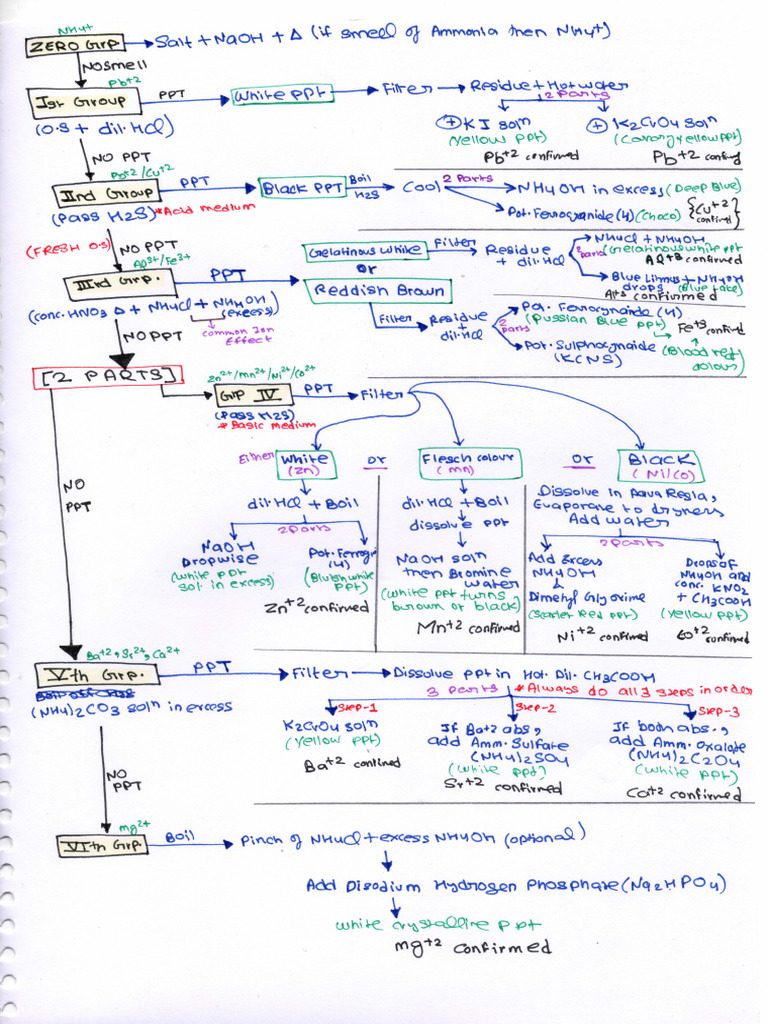 NH4+
ZERO Grp
Salt + NaOH + Δ (if smell of Ammonia then NH4+)
NO smell
Pb+2
Ist Group
PPT
White PPt
Filter
Residue + Hot water
2 Parts
(O.S + dil. HCl)
+ KI solⁿ
(Yellow ppt)
Pb+2 confirmed
+ K2CrO4 solⁿ
(Canary yellow ppt)
Pb+2 confirmed
NO PPT
Pb+2/Cu+2
IInd Group
PPT
Black PPT
Boil
H2S
Cool
2 Parts
NH4OH in excess (Deep Blue)
(Pass H2S) *Acid medium
Pot. Ferrocyanide (4) (Choco)
{Cu+2
confirmed
(FRESH O.S)
NO PPT
Al3+/Fe3+
IIIrd Grp.
PPT
Gelatinous White
or
Reddish Brown
Filter
Residue
+ dil. HCl
2
Parts
NH4Cl + NH4OH
(Gelatinous white ppt
Al+3 confirmed
Blue Litmus + NH4OH
drops (Blue Lake)
Al+3 confirmed
(conc. HNO3 Δ + NH4Cl + NH4OH
(excess)
Common Ion
Effect
Filter
Residue
+
dil. HCl
2
Parts
Pot. Ferrocynaide (4)
(Prussian Blue ppt)
Fe+3 confirmd
Pot. Sulphocynaide (Blood red
(KCNS)
colour)
NO PPT
[2 PARTS]
Zn2+/Mn2+/Ni2+/Co2+
Grp IV
PPT
Filter
(Pass H2S)
* Basic medium
Either
White
(Zn)
or
Flesch colour
(Mn)
or
Black
(Ni/Co)
NO
PPT
dil. HCl + Boil
2 Parts
NaOH
Dropwise
(White ppt
sol. in excess)
Pot. Ferrocy
(4)
(Bluish white
ppt)
Zn+2 confirmed
dil. HCl + Boil
dissolve ppt
NaOH solⁿ
then Bromine
water
(White ppt turns
brown or black)
Mn+2 confirmed
Dissolve in Aqua Regia,
Evaporate to dryness
Add water
2 Parts
Add Excess
NH4OH
&
Dimethyl Glyoxime
(Scarlet Red ppt)
Ni+2 confirmed
Drops of
NH4OH and
conc. KNO2
+ CH3COOH
(Yellow ppt)
Co+2 confirmed
Ba+2, Sr2+, Ca2+
Vth Grp.
PPT
Filter
Dissolve ppt in Hot. Dil. CH3COOH
(NH4)2CO3 solⁿ in excess
3 parts
*Always do all 3 steps in order
Step-1
K2CrO4 solⁿ
(Yellow ppt)
Ba+2 confirmed
Step-2
If Ba+2 abs,
add Amm. Sulfate
(NH4)2SO4
(White ppt)
Sr+2 confirmed
Step-3
If both abs.,
add Amm. Oxalate
(NH4)2C2O4
(White ppt)
Ca+2 confirmed
NO
PPT
Mg2+
VIth Grp.
Boil
Pinch of NH4Cl + excess NH4OH (optional)
Add Disodium Hydrogen Phosphate (Na2HPO4)
White crystalline ppt
Mg+2 confirmed